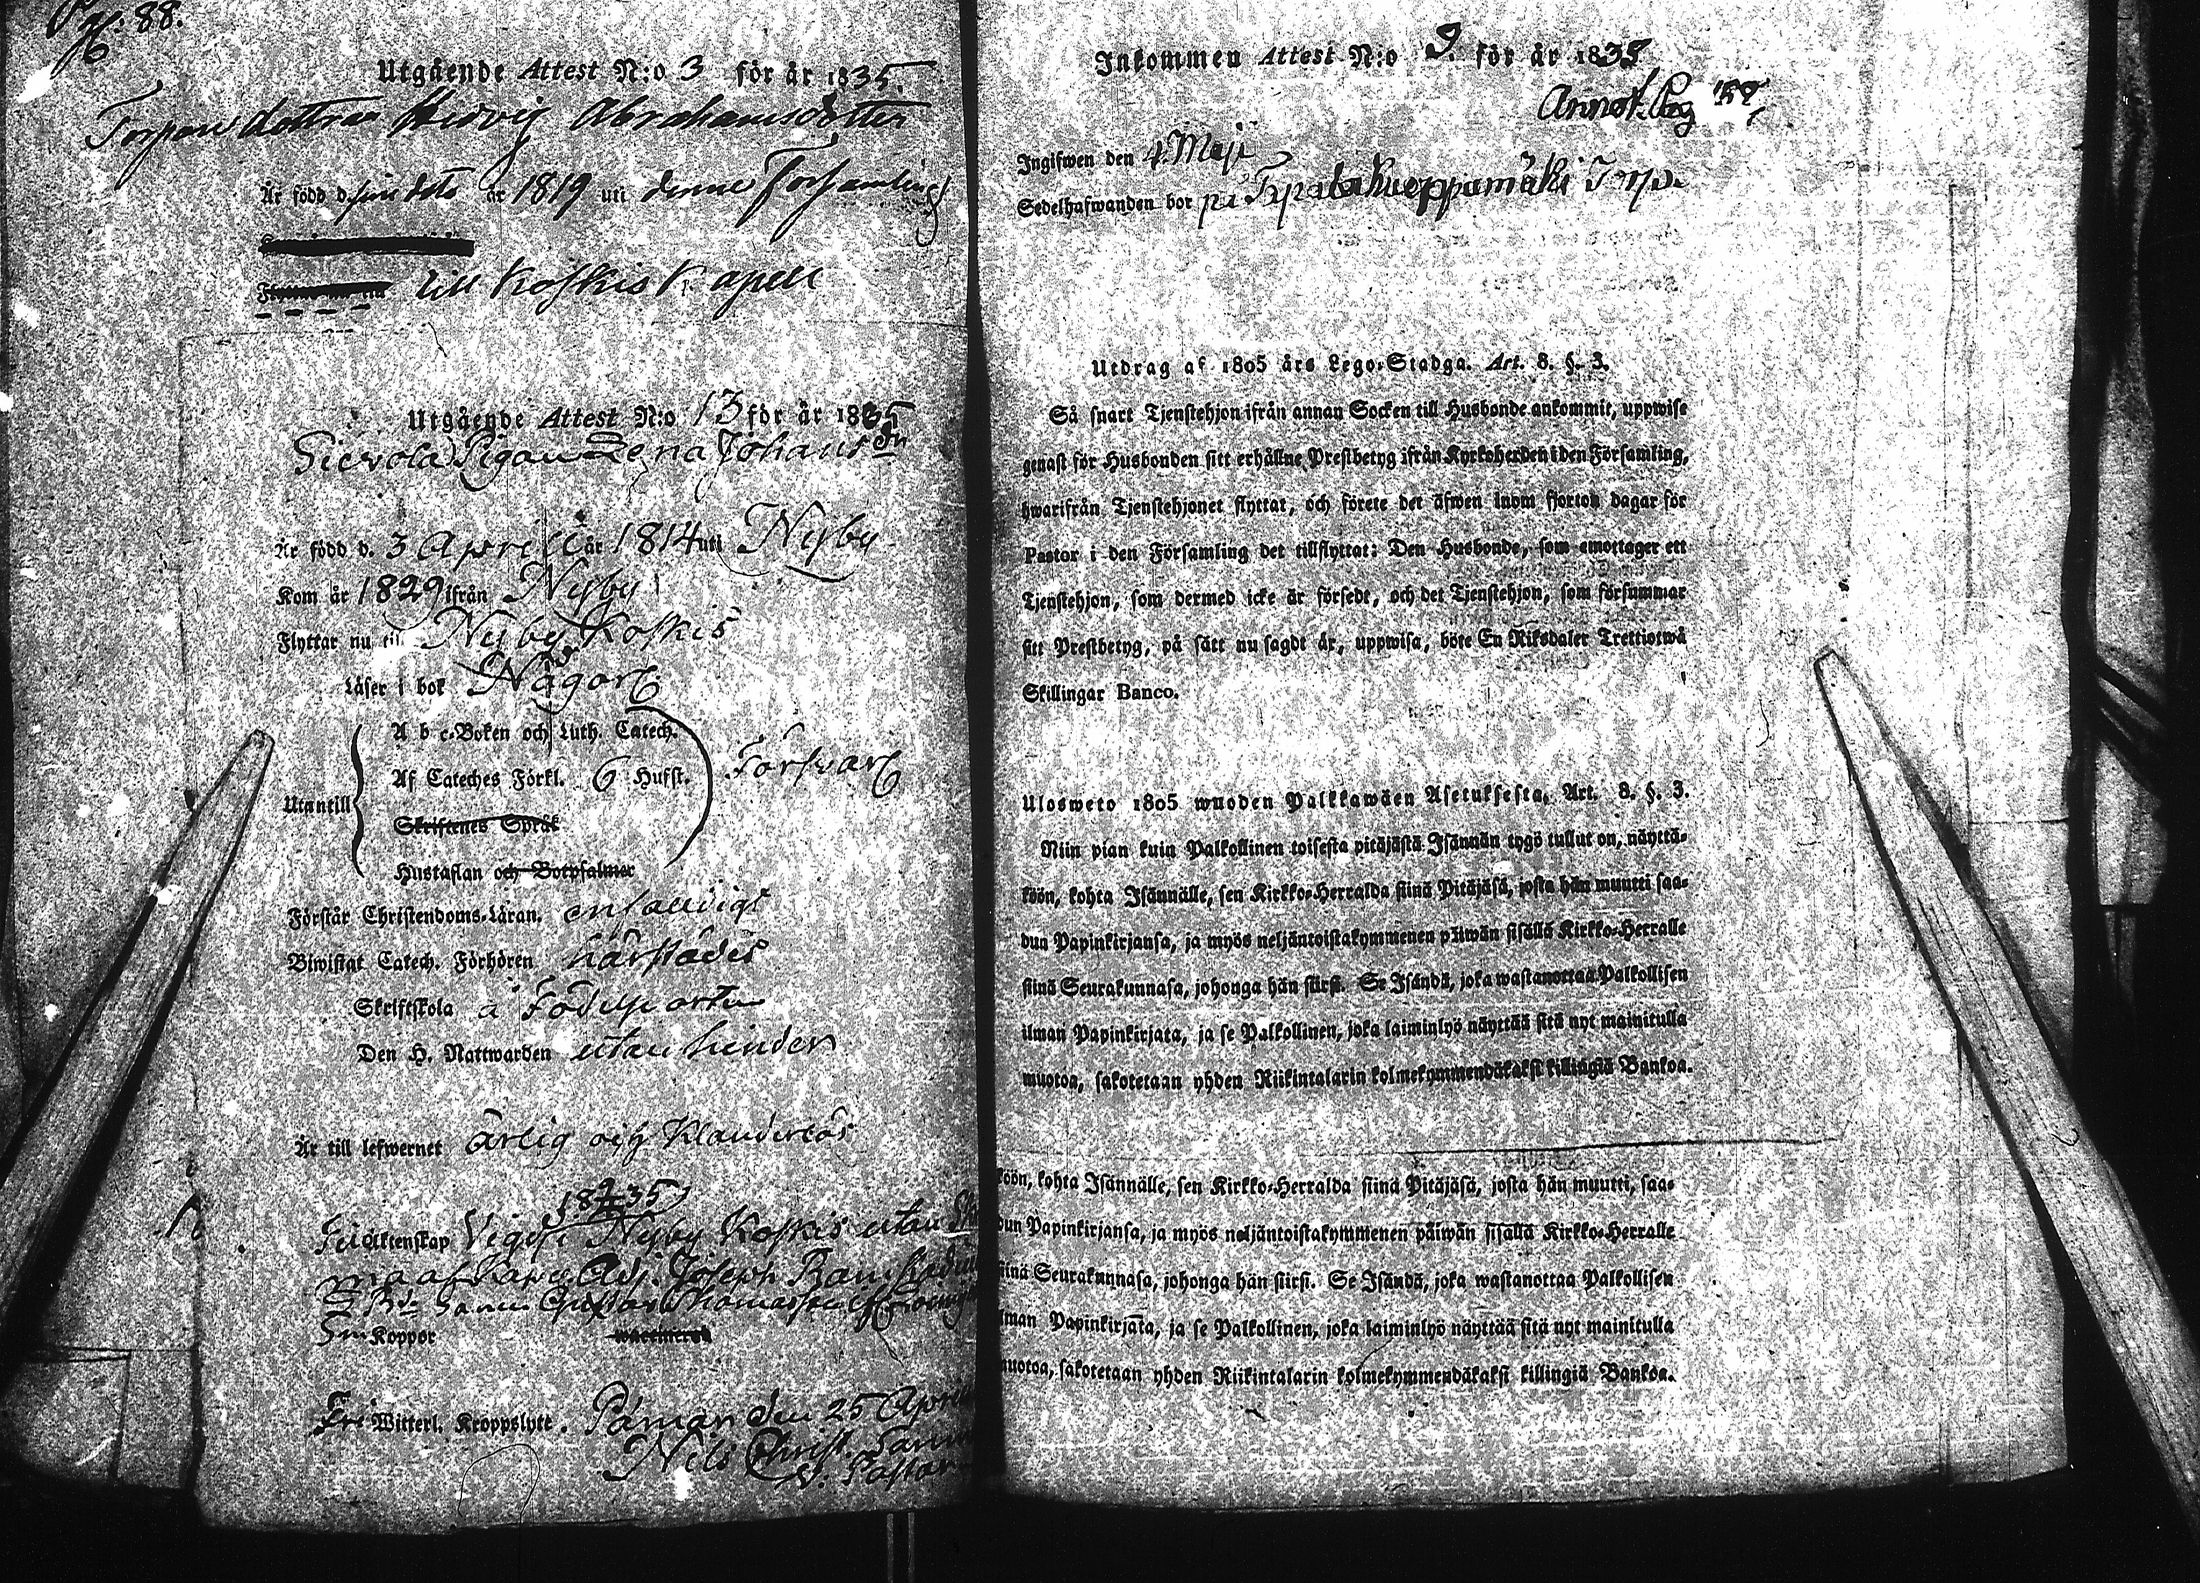 Pag. 88.
Utgående Attest N:o 3 för år 1835.
Torpare dottren Hedvig Abrahamsdotter
Är född d. sine dato år 1819 uti denne Församling
till Koskis Kapell
Utgående Attest N:o 13 för år 1835
Pigan Lena Johans dr
Är född d. 3 April år 1814 uti Nyby
Kom år 1829 ifrån Nyby
Flyttar nu till Nyby Koskis
Läser i bok Någorl.
A b c-Boken och Luth. Catech.
Af Cateches Förkl. 6 Hufst. Försvarl.
Utantill
Skriftenes Språk
Hustaflan och Botpsalmer
Förstår Christendoms-Läran. enfaldigt
Biwistat Catech. Förhören härstädes
Skriftskola å Födelseorten
Den H. Nattwarden utan hinder
Är till lefwernet ärlig och Klanderlös
1835
Äktenskap Nyby Koskis utan
af Adj. Joseph
Gustav Thomasson
Koppor waccinerad
Fri Witterl. Kroppslyte. Pämar den 25 April
Nils Christ.
V. Pastor
Inkommen Attest N:o 9. för år 1835
Annot. Pag
Ingifwen den 4. Maji
Sedelhafwanden bor på Torp.
Utdrag af 1805 års Lego-Stadga. Art. 8. §. 3.
Så snart Tjenstehjon ifrån annan Socken till Husbonde ankommit, uppwise
genast för Husbonden sitt erhållne Prestbetyg ifrån Kyrkoherden i den Församling,
hwarifrån Tjenstehjonet flyttat, och förete det äfwen inom fjorton dagar för
Pastor i den Församling det tillflyttat: Den Husbonde, som emottager ett
Tjenstehjon, som dermed icke är försedt, och det Tjenstehjon, som försummar
sitt Prestbetyg, på sätt nu sagdt är, uppwisa, böte En Riksdaler Trettiotwå
Skillingar Banco.
Ulosweto 1805 wuoden Palkkawäen Asetuksesta. Art. 8. §. 3.
Niin pian kuin Palkollinen toisesta pitäjästä Isännän tygö tullut on, näyttä-
köön, kohta Isännälle, sen Kirkko-Herralda siinä Pitäjäsä, josta hän muutti saa-
dun Papinkirjansa, ja myös neljäntoistakymmenen päiwän sisällä Kirkko-Herralle
siinä Seurakunnasa, johonga hän siirsi. Se Isändä, joka wastanottaa Palkollisen
ilman Papinkirjata, ja se Palkollinen, joka laiminlyö näyttää sitä nyt mainitulla
muotoa, sakotetaan yhden Riikintalarin kolmekymmendäkaksi killingiä Bankoa.
köön, kohta Isännälle, sen Kirkko-Herralda siinä Pitäjäsä, josta hän muutti, saa-
dun Papinkirjansa, ja myös neljäntoistakymmenen päiwän sisällä Kirkko-Herralle
siinä Seurakunnasa, johonga hän siirsi. Se Isändä, joka wastanottaa Palkollisen
ilman Papinkirjata, ja se Palkollinen, joka laiminlyö näyttää sitä nyt mainitulla
muotoa, sakotetaan yhden Riikintalarin kolmekymmendäkaksi killingiä Bankoa.